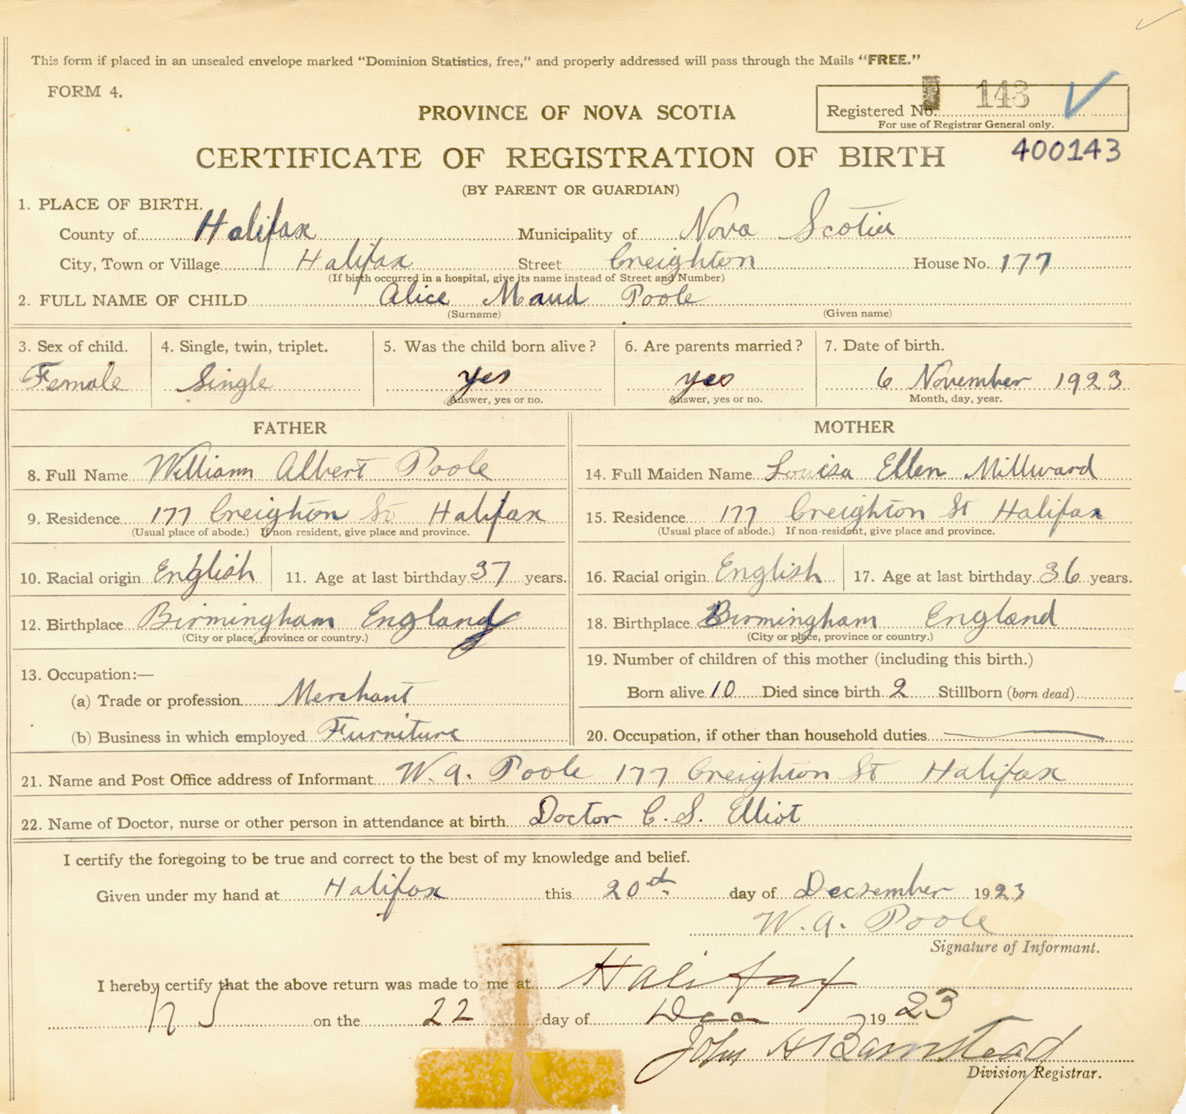 This form if placed in an unsealed envelope marked "Dominion Statistics, free," and properly addressed will pass through the Mails "FREE."
FORM 4.
Registered No. 143
For use of Registrar General only.
PROVINCE OF NOVA SCOTIA
400143
CERTIFICATE OF REGISTRATION OF BIRTH
(BY PARENT OR GUARDIAN)
1. PLACE OF BIRTH.
County of Halifax Municipality of Nova Scotia
City, Town or Village Halifax Street Creighton House No. 177
(If birth occurred in a hospital, give its name instead of Street and Number)
2. FULL NAME OF CHILD Alice Maud Poole
(Surname) (Given name)
3. Sex of child. 4. Single, twin, triplet. 5. Was the child born alive? 6. Are parents married? 7. Date of birth.
Female Single yes yes 6 November 1923
Answer, yes or no. Answer, yes or no. Month, day, year.
FATHER MOTHER
8. Full Name William Albert Poole 14. Full Maiden Name Louisa Ellen Millward
9. Residence 177 Creighton St Halifax 15. Residence 177 Creighton St Halifax
(Usual place of abode.) If non-resident, give place and province. (Usual place of abode.) If non-resident, give place and province.
10. Racial origin English 11. Age at last birthday 37 years. 16. Racial origin English 17. Age at last birthday 36 years.
12. Birthplace Birmingham England 18. Birthplace Birmingham England
(City or place, province or country.) (City or place, province or country.)
13. Occupation:— 19. Number of children of this mother (including this birth.)
(a) Trade or profession Merchant Born alive 10 Died since birth 2 Stillborn (born dead)
(b) Business in which employed Furniture 20. Occupation, if other than household duties
21. Name and Post Office address of Informant W. A. Poole 177 Creighton St Halifax
22. Name of Doctor, nurse or other person in attendance at birth Doctor C. S. Elliot
I certify the foregoing to be true and correct to the best of my knowledge and belief.
Given under my hand at Halifax this 20th day of Decsember 1923
W. A. Poole
Signature of Informant.
I hereby certify that the above return was made to me at Halifax
N S on the 22 day of Dec 1923
John H Barnstead
Division Registrar.